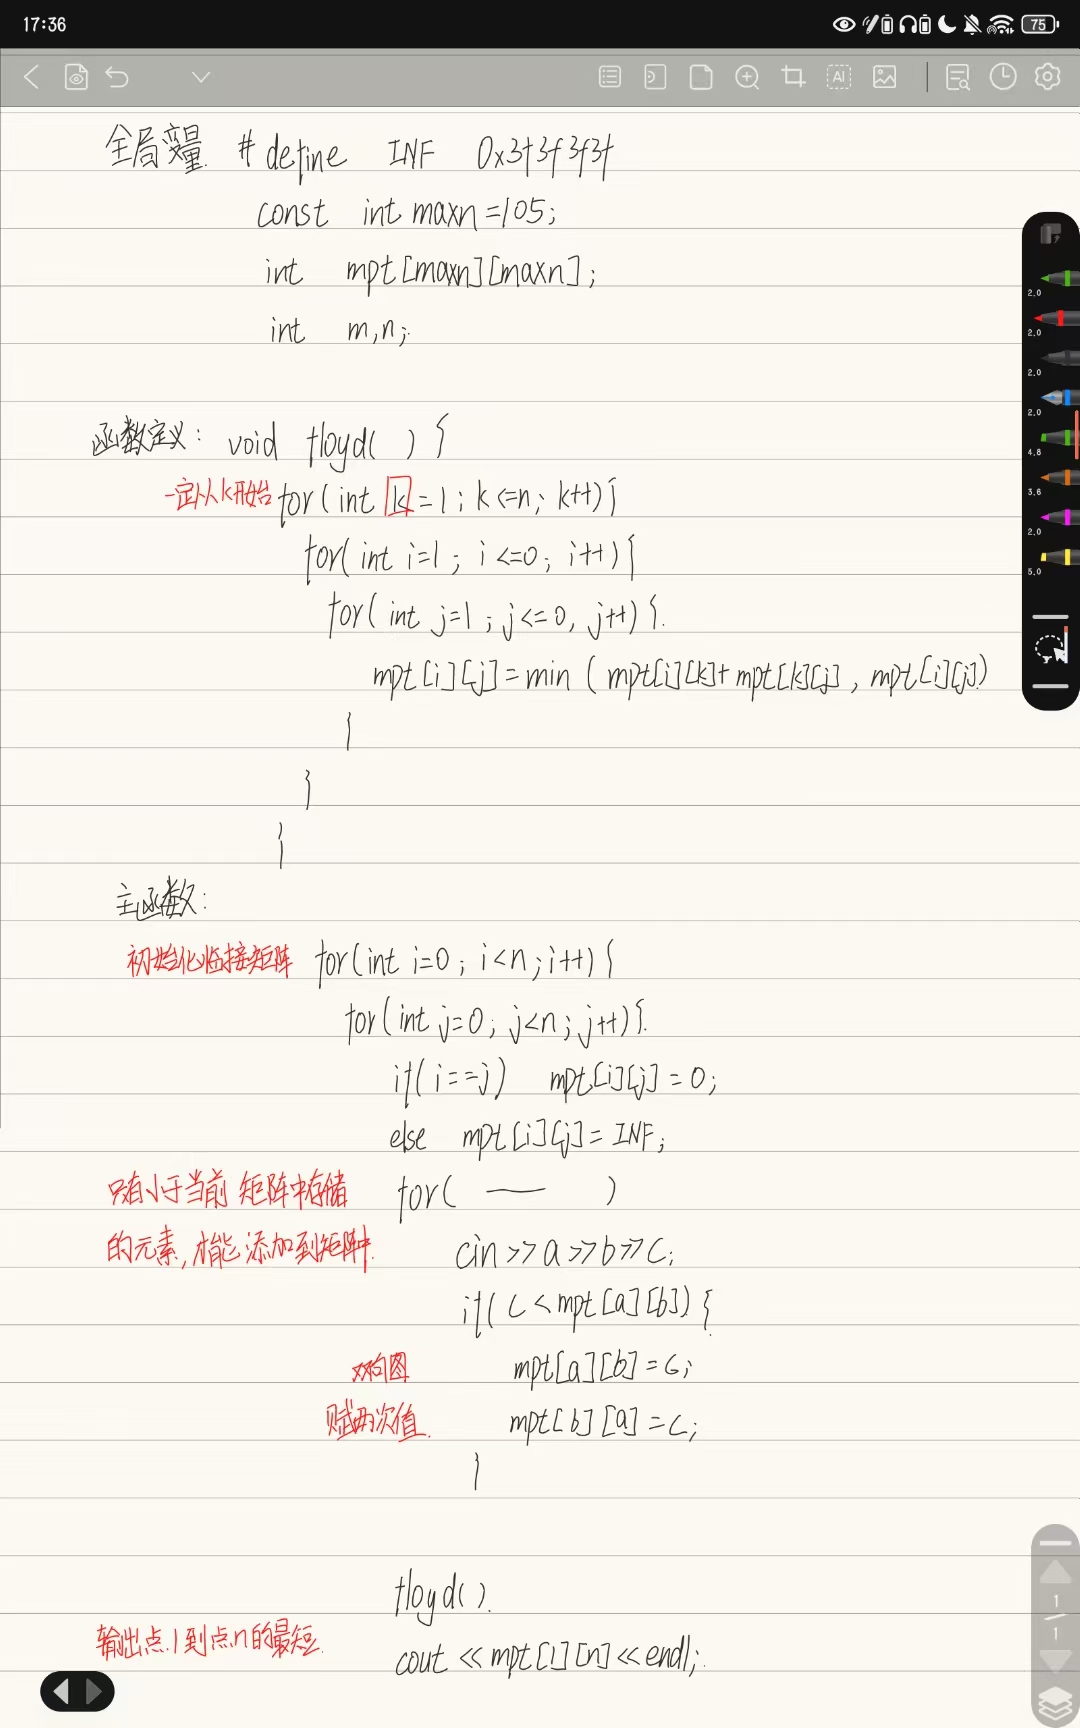 17:36
75
AI
全局变量 #define INF 0x3f3f3f3f
const int maxn=105;
int mpt[maxn][maxn];
int m,n;
函数定义: void floyd( ) {
一定从k开始 for(int k=1; k<=n; k++){
for(int i=1; i<=0; i++){
for(int j=1; j<=0, j++){
mpt[i][j]=min (mpt[i][k]+mpt[k][j], mpt[i][j])
}
}
}
主函数:
初始化临接矩阵 for(int i=0; i<n; i++){
for(int j=0; j<n; j++){
if(i==j) mpt[i][j]=0;
else mpt[i][j]=INF;
只有小于当前矩阵中存储 for( — )
的元素,才能添加到矩阵中. cin>>a>>b>>c;
if(c<mpt[a][b]){
双向图 mpt[a][b]=c;
赋两次值. mpt[b][a]=c;
}
floyd().
输出点1到点n的最短. cout<<mpt[1][n]<<endl;
2.0
2.0
2.0
2.0
4.8
3.6
2.0
5.0
1
1